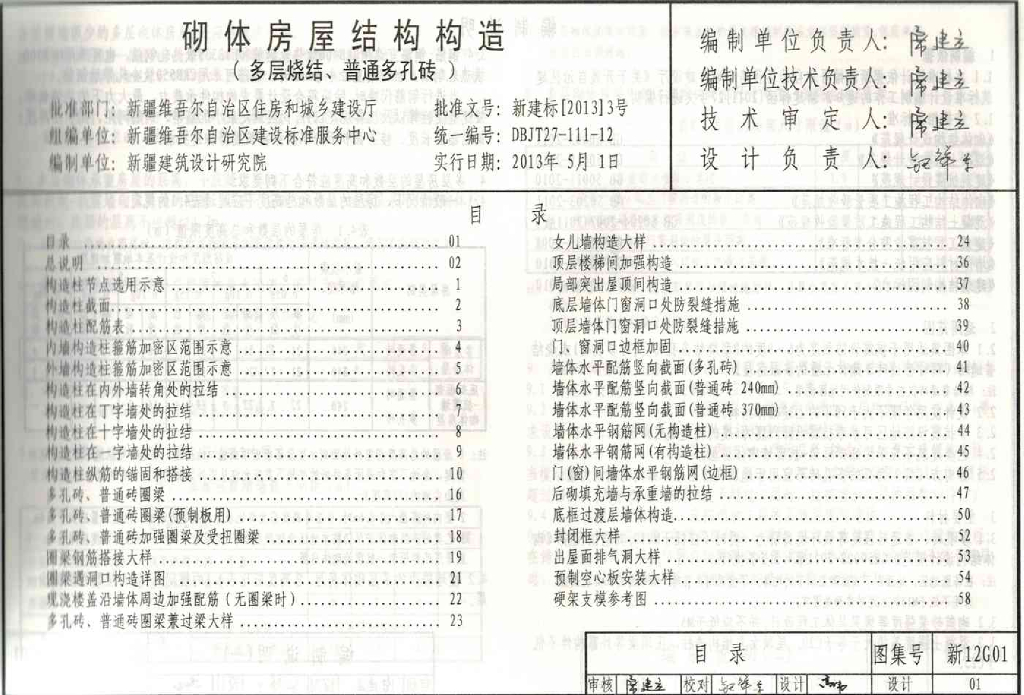 砌体房屋结构构造
多层烧结、普通多孔砖
批准部门：新疆维吾尔自治区住房和城乡建设厅 批准文号：新建标[2013]3号
组编单位：新疆维吾尔自治区建设标准服务中心 统一编号：DBJT27-111-12
编制单位：新疆建筑设计研究院 实行日期：2013年5月1日
编制单位负责人：常建立
编制单位技术负责人：常建立
技术审定人：常建立
设计负责人：
目 录
目录 01
总说明 02
构造柱节点选用示意 1
构造柱截面 2
构造柱配筋表 3
内墙构造柱箍筋加密区范围示意 4
外墙构造柱箍筋加密区范围示意 5
构造柱在内外墙转角处的拉结 6
构造柱在丁字墙处的拉结 7
构造柱在十字墙处的拉结 8
构造柱在一字墙处的拉结 9
构造柱纵筋的锚固和搭接 10
多孔砖、普通砖圈梁 16
多孔砖、普通砖圈梁(预制板用) 17
多孔砖、普通砖加强圈梁及受扭圈梁 18
圈梁钢筋搭接大样 19
圈梁遇洞口构造详图 21
现浇楼盖沿墙体周边加强配筋（无圈梁时） 22
多孔砖、普通砖圈梁兼过梁大样 23
女儿墙构造大样 24
顶层楼梯间加强构造 36
局部突出屋顶间构造 37
底层墙体门窗洞口处防裂缝措施 38
顶层墙体门窗洞口处防裂缝措施 39
门、窗洞口边框加固 40
墙体水平配筋竖向截面(多孔砖) 41
墙体水平配筋竖向截面(普通砖 240mm) 42
墙体水平配筋竖向截面(普通砖 370mm) 43
墙体水平钢筋网(无构造柱) 44
墙体水平钢筋网(有构造柱) 45
门(窗)间墙体水平钢筋网(边框) 46
后砌填充墙与承重墙的拉结 47
底框过渡层墙体构造 50
封闭框大样 52
出屋面排气洞大样 53
预制空心板安装大样 54
硬架支模参考图 58
目 录 图集号 新12G01
审核 常建立 校对 设计 设计 01